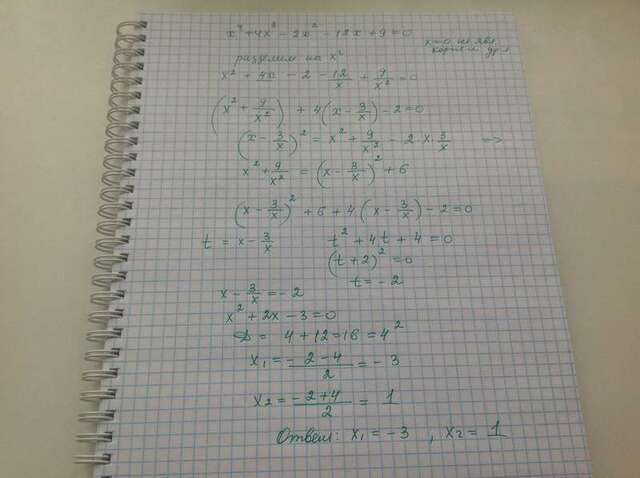 x⁴+4x³-2x²-12x+9=0
x=0 не явл. корнем ур.
разделим на x²
x² + 4x - 2 - 12/x + 9/x² = 0
(x² + 9/x²) + 4(x - 3/x) - 2 = 0
(x - 3/x)² = x² + 9/x² - 2·x·3/x =>
x² + 9/x² = (x - 3/x)² + 6
(x - 3/x)² + 6 + 4(x - 3/x) - 2 = 0
t = x - 3/x t² + 4t + 4 = 0
(t+2)² = 0
t = -2
x - 3/x = -2
x² + 2x - 3 = 0
D = 4 + 12 = 16 = 4²
x₁ = (-2-4)/2 = -3
x₂ = (-2+4)/2 = 1
Ответ: x₁ = -3 , x₂ = 1